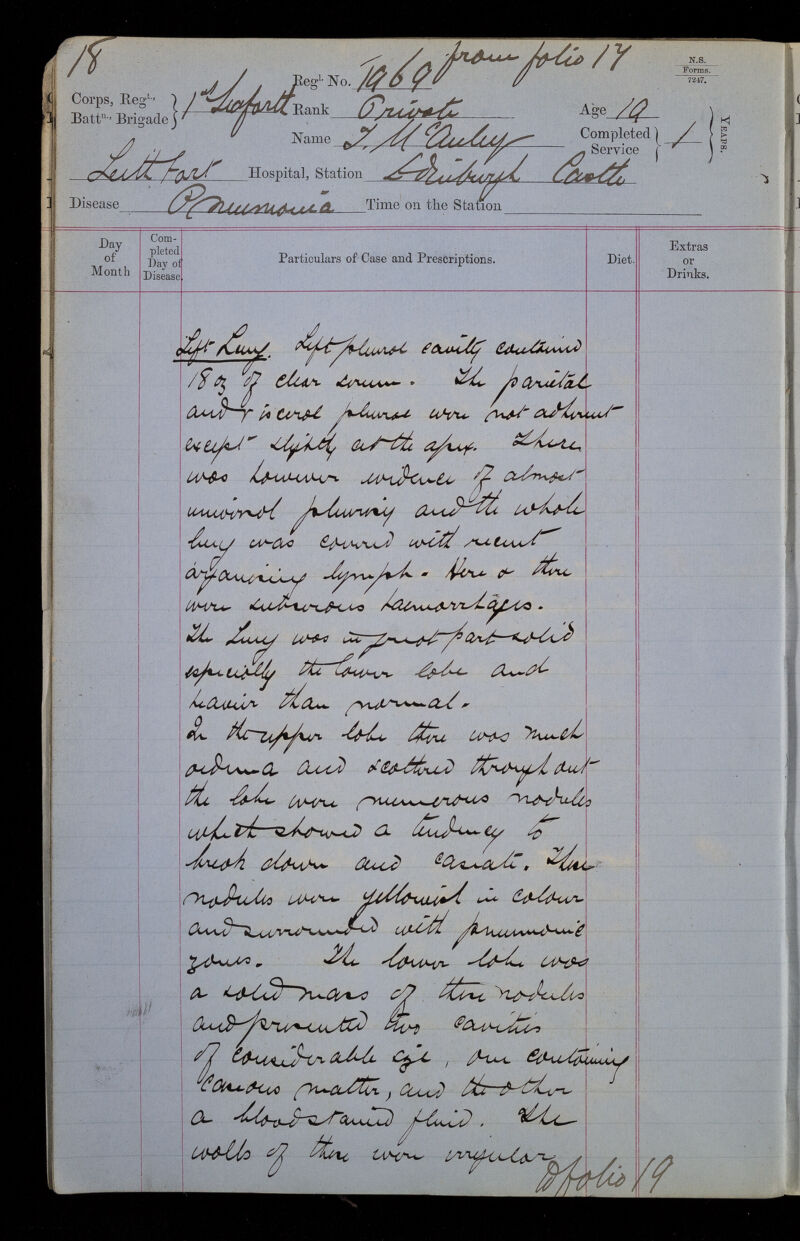 18
from folio 17
N.S.
Forms.
7247.
Corps, Regt., Battn., Brigade } 1st Seaforth Regl. No. 1969
Rank Private Age 19
Name J. McAuley Completed Service } 1 } YEARS.
Leith Fort Hospital, Station Edinburgh Castle
Disease Pneumonia Time on the Station
Day of Month
Completed Day of Disease.
Particulars of Case and Prescriptions.
Diet.
Extras or Drinks.
Left Lung. Left pleural cavity contained
18 oz of clear serum. The parietal
and visceral pleurae were not adherent
except slightly at the apex. There
was however evidence of almost
universal pleurisy and the whole
lung was covered with recent
organising lymph. Here & there
were subserous haemorrhages.
The Lung was in great part solid
especially the lower lobe and
heavier than normal.
In the upper lobe there was much
oedema and scattered throughout
the lobe were numerous nodules
which showed a tendency to
break down and caseate. These
nodules were yellowish in colour
and surrounded with pneumonic
zones. The lower lobe was
a solid mass of these nodules
and presented two cavities
of considerable size, one containing
caseous matter, and the other
a bloodstained fluid. The
walls of these were irregular
to folio 19